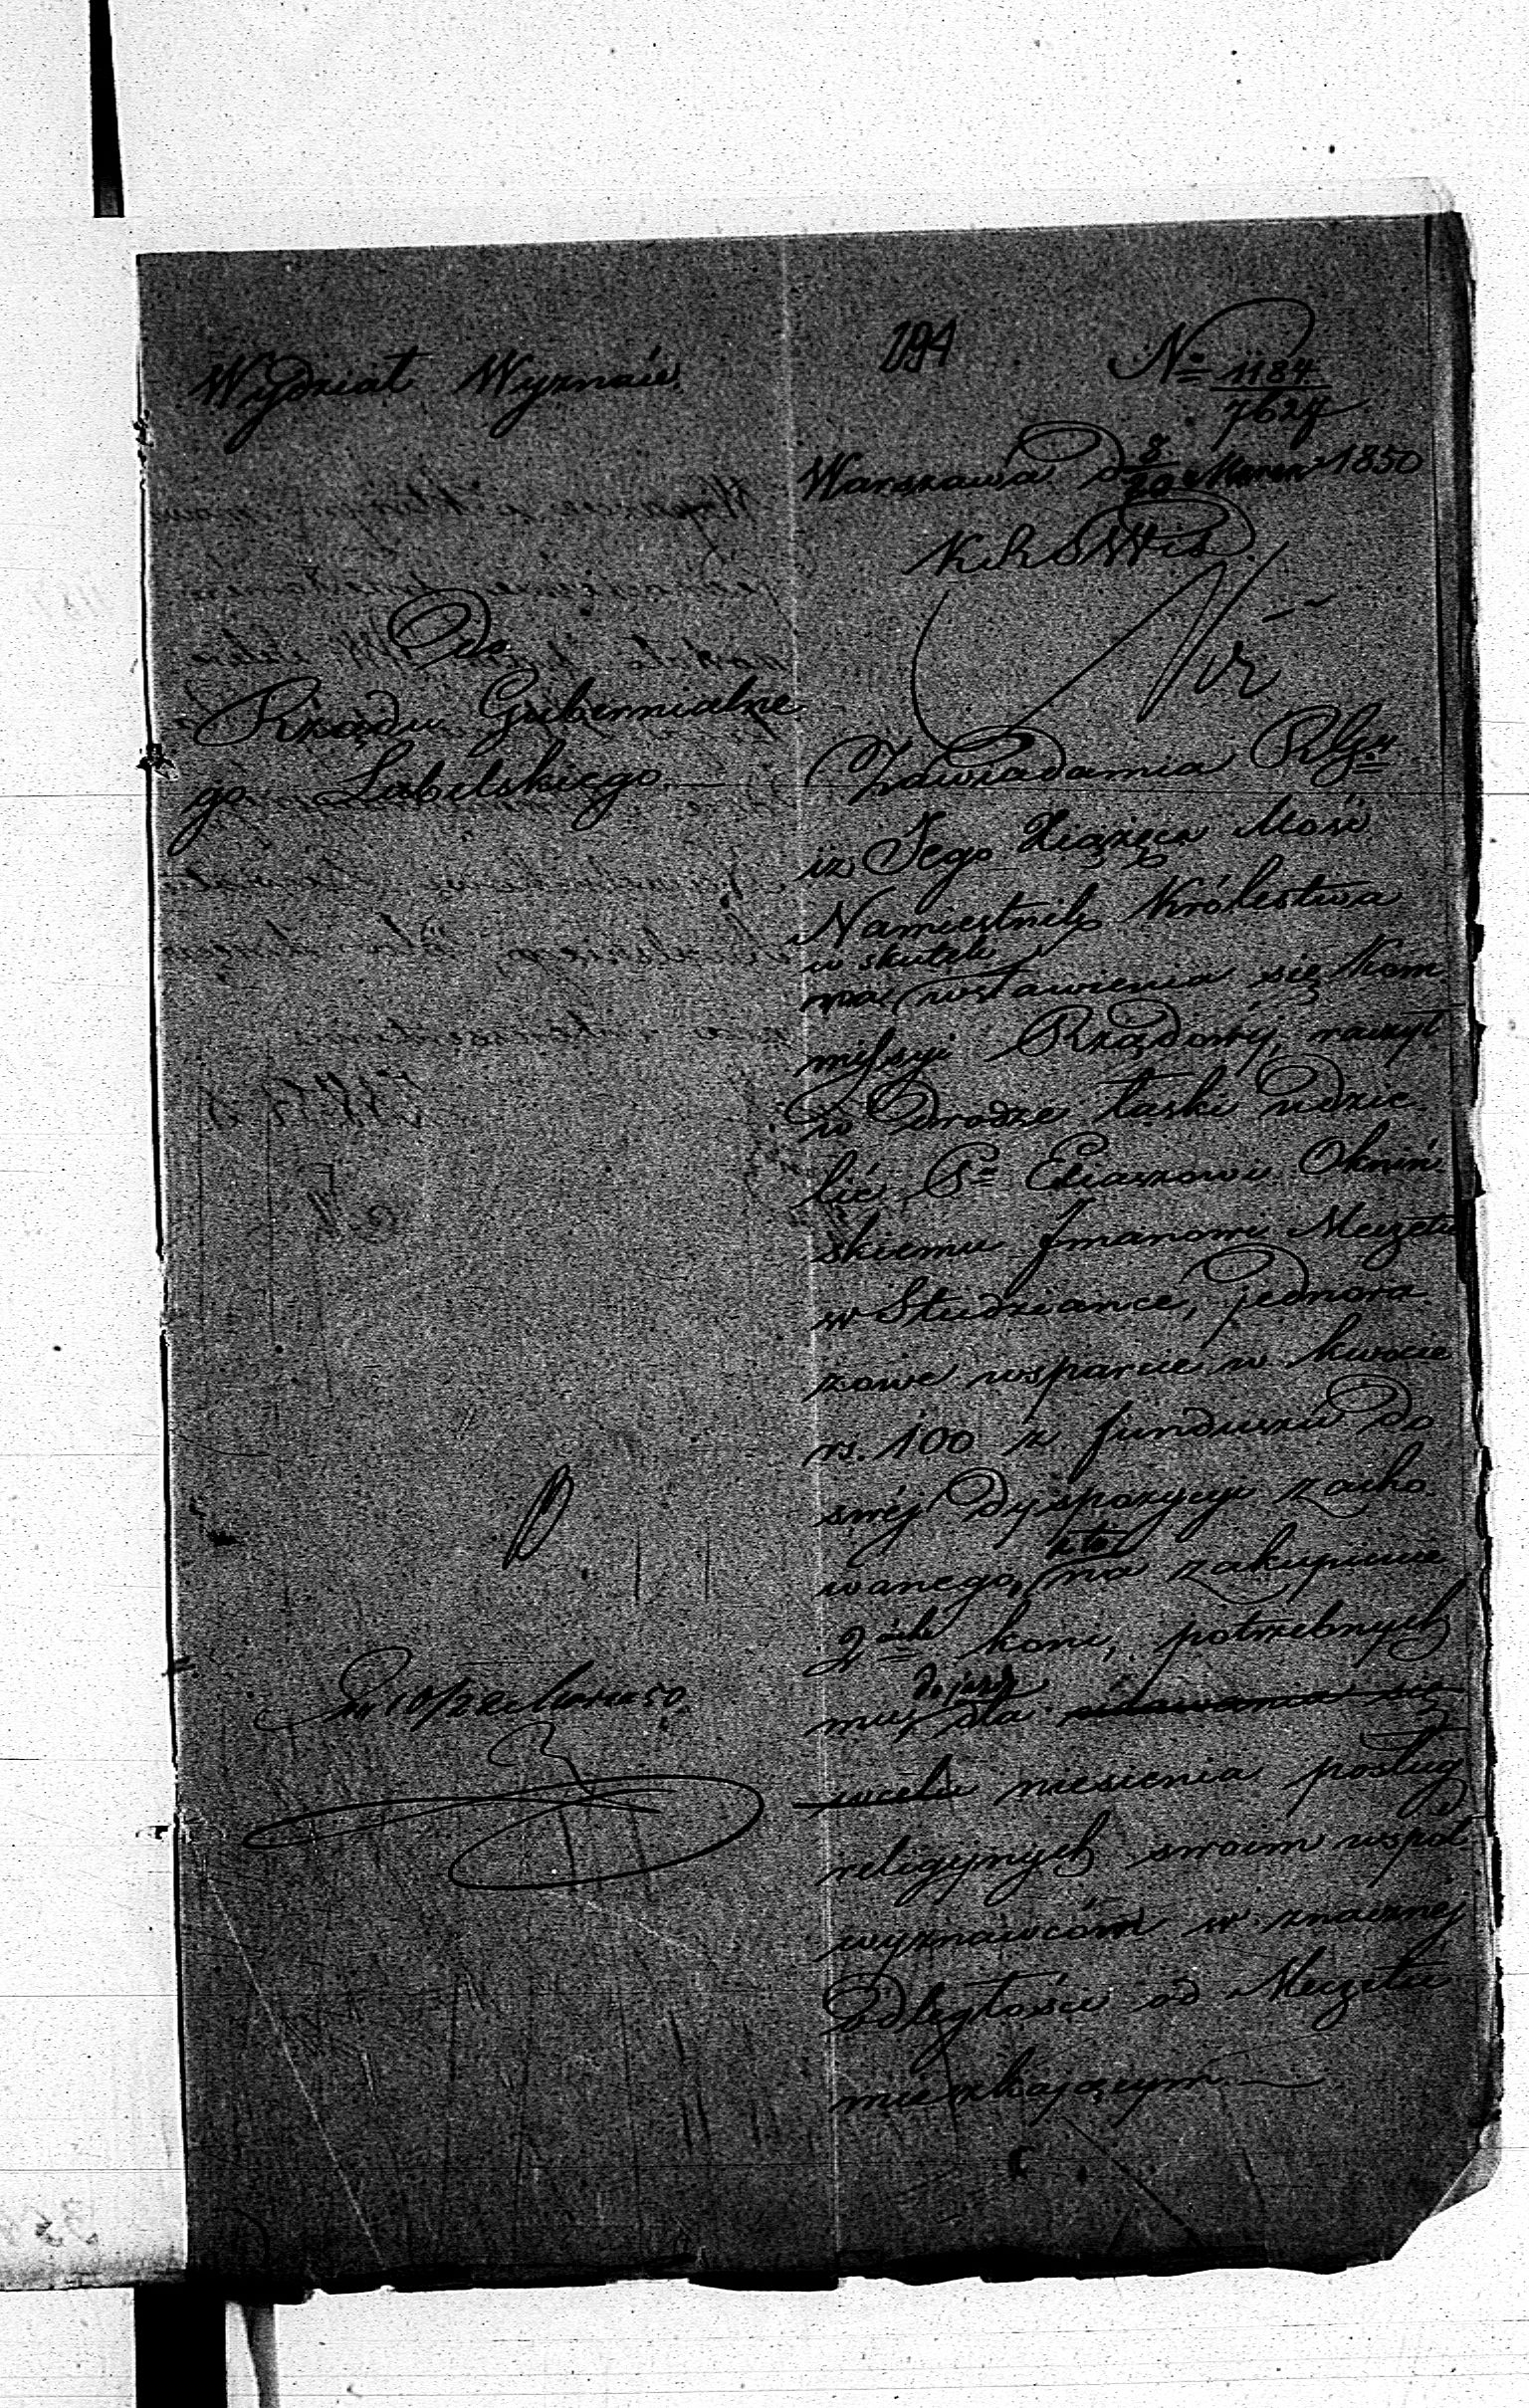 Wydział Wyznań.
194
Nº 1184
7627
Warszawa d 8/20 Marca 1850
K R S W i D.
Do
Rządu Gubernialne
go Lubelskiego.
Zawiadamia RGu
iż Jego Xiążęca Mość
Namiestnik Królestwa
w skutek
wstawienia się Kom
missyi Rządowéj, raczył
w drodze łaski udzie
lić Pu Eliaszowi Okniń
skiemu Imanowi Meczetu
w Studziance, jednora
zowe wsparcie w kwocie
rs. 100 z funduszu do
swéj dyspozycyi zacho
wanego, na zakupienie
2ch koni, potrzebnych
mu, do jazd
dla udawania się
w celu niesienia posług
religijnych swoim współ
wyznawcóm w znacznéj
odległości od Meczetu
mieszkającym.—
10/22 Marca 50